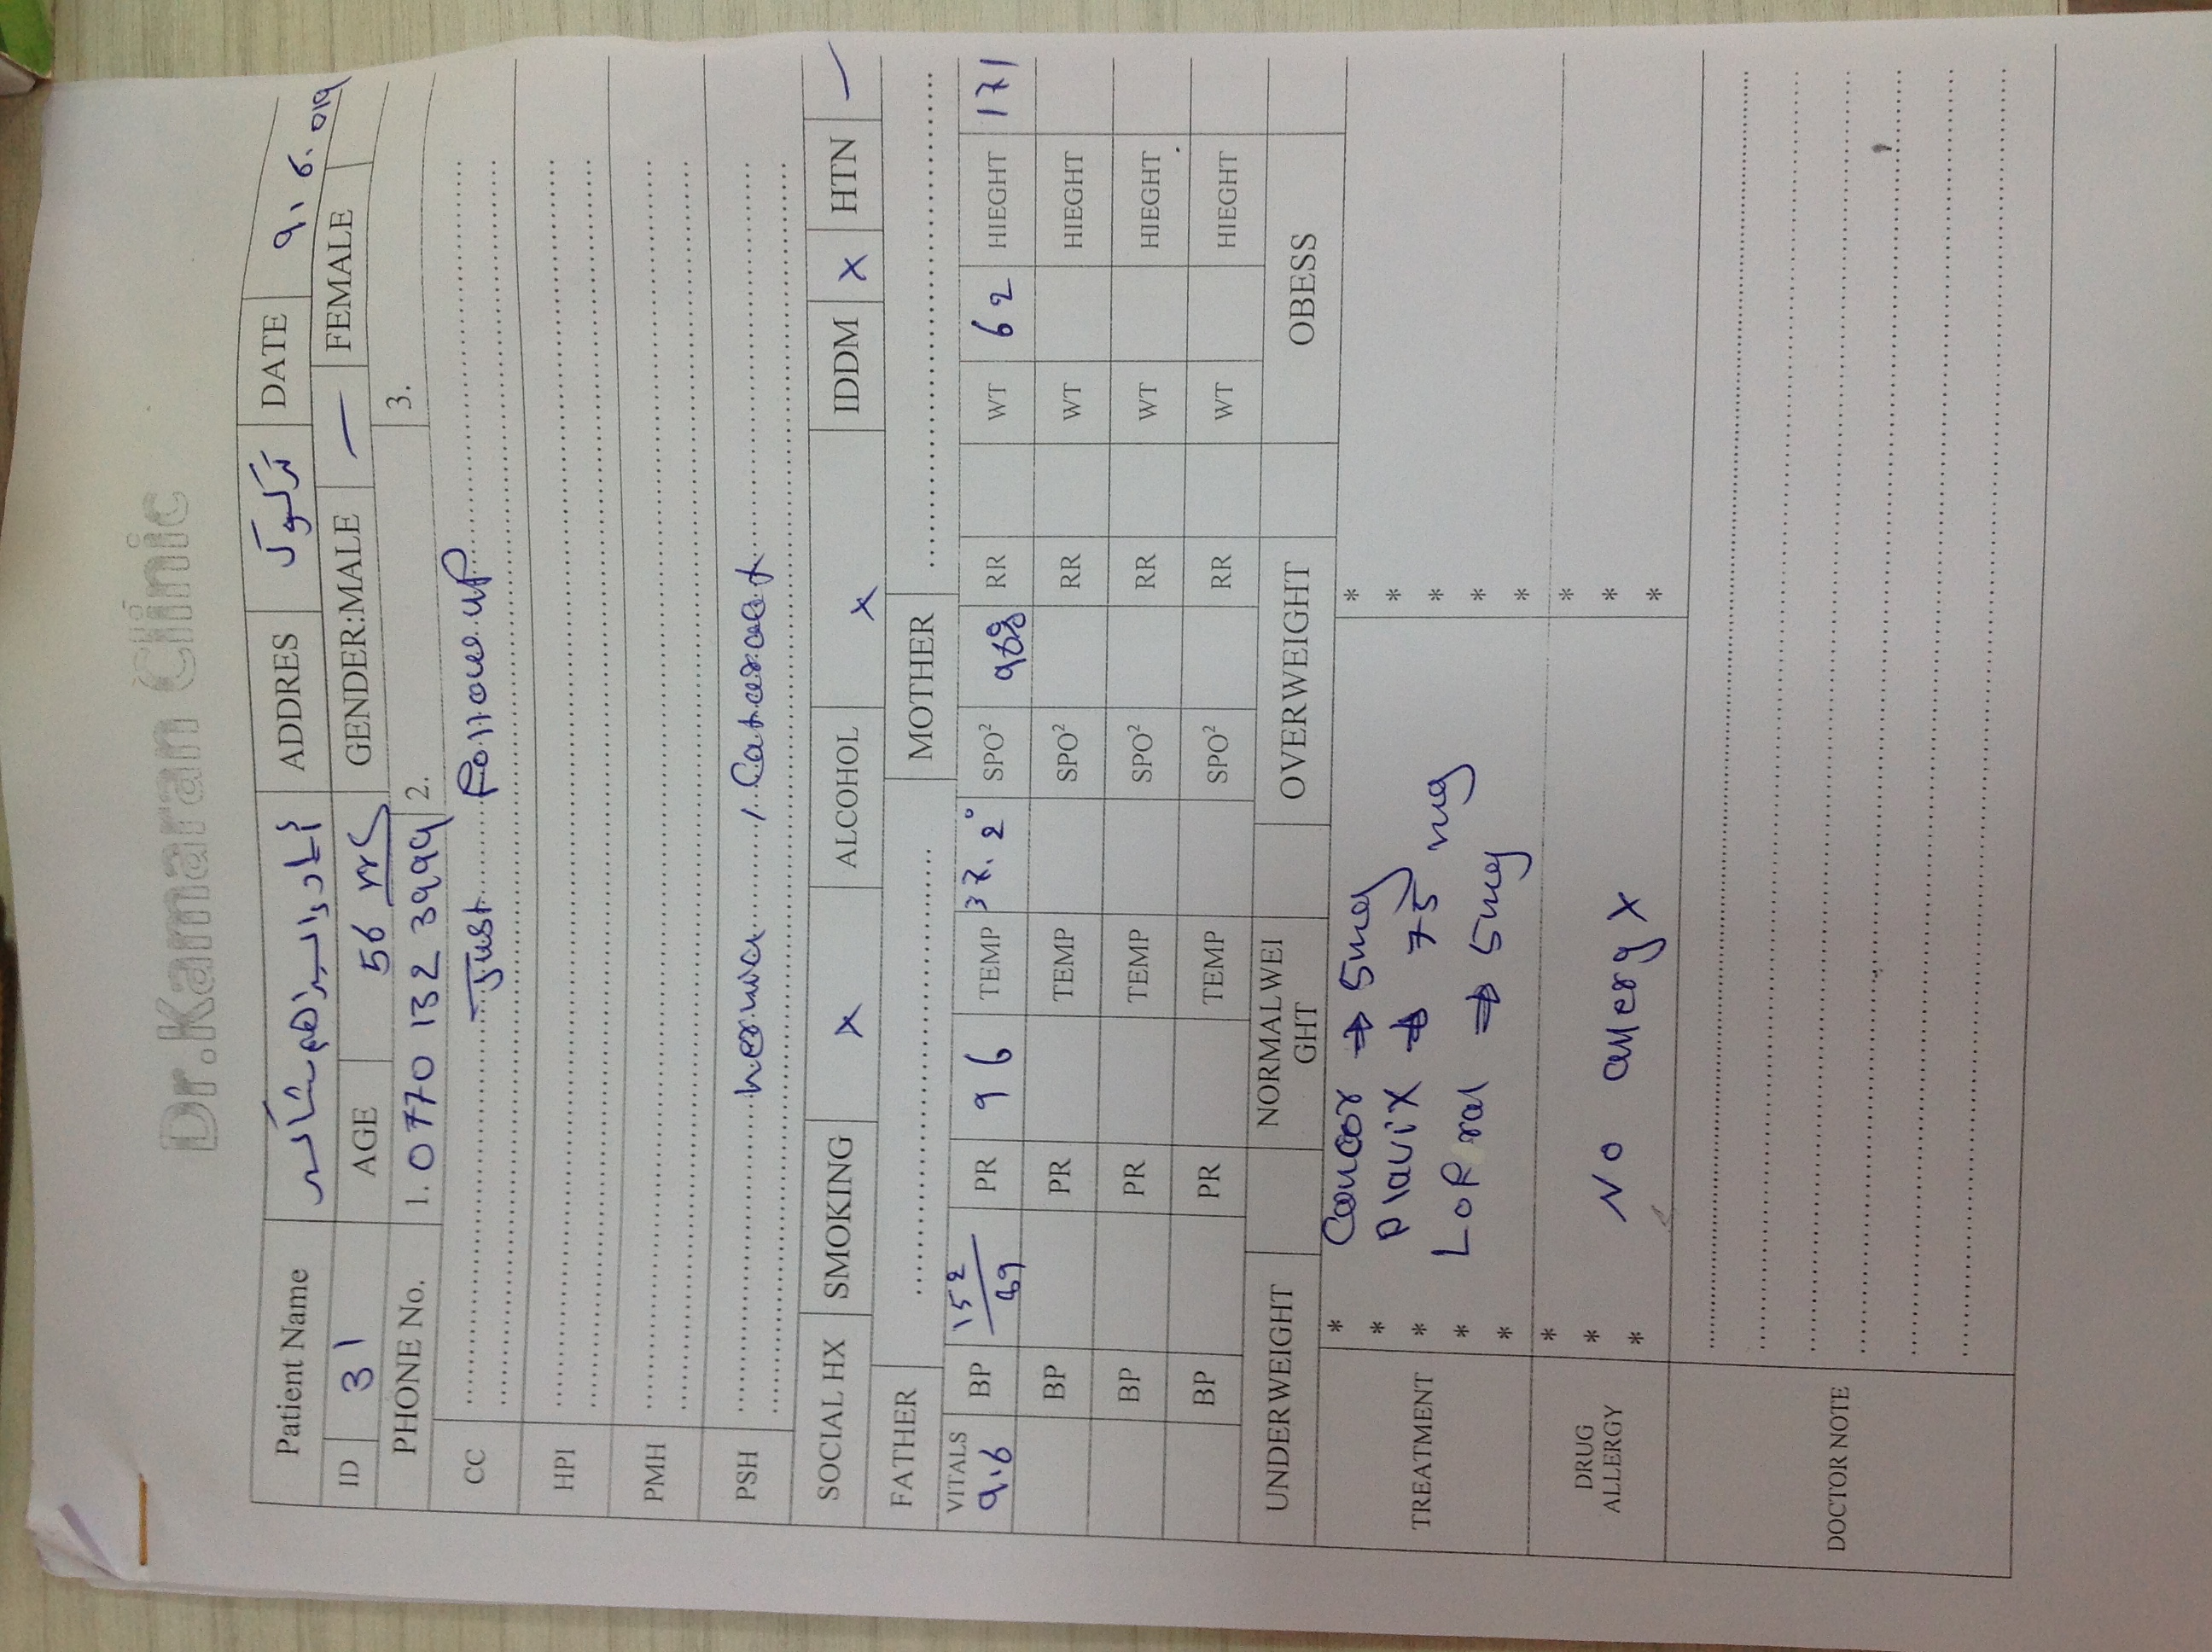 Dr.Kamaran Clinic
Patient Name ADDRES DATE 9.6.019
ID 31 AGE 56 GENDER:MALE — FEMALE
PHONE No. 1. 0770 132 3999 2. 3.
CC Just Follow up
HPI
PMH
PSH hernia / Cataract
SOCIAL HX SMOKING x ALCOHOL x IDDM x HTN —
FATHER MOTHER
VITALS 9.6 BP 152/69 PR 96 TEMP 37.2° SPO² RR WT 62 HIEGHT 171
BP PR TEMP SPO² RR WT HIEGHT
BP PR TEMP SPO² RR WT HIEGHT
BP PR TEMP SPO² RR WT HIEGHT
UNDERWEIGHT NORMALWEIGHT OVERWEIGHT OBESS
TREATMENT * Concor ⇒ 5mg *
* Plavix ⇒ 75 mg *
* ⇒ 5mg *
* *
* *
DRUG ALLERGY * *
* No allergy x *
* *
DOCTOR NOTE